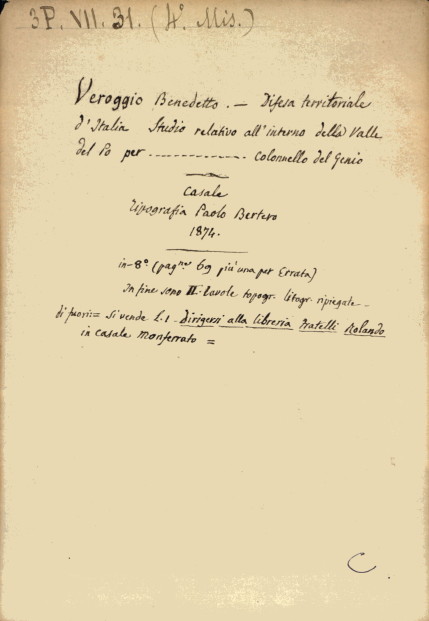 3P. VII. 31. (4º. Mis.)
Veroggio Benedetto. — Difesa territoriale
d'Italia Studio relativo all'interno della Valle
del Po per -------------- Colonnello del Genio
Casale
Tipografia Paolo Bertero
1874.
in-8º. (pagne 69 più una per Errata)
In fine sono II. tavole topogr. litogr. ripiegate_
Di fuori:= Si vende L.1_ Dirigersi alla libreria Fratelli Rolando
in Casale Monferrato =
C